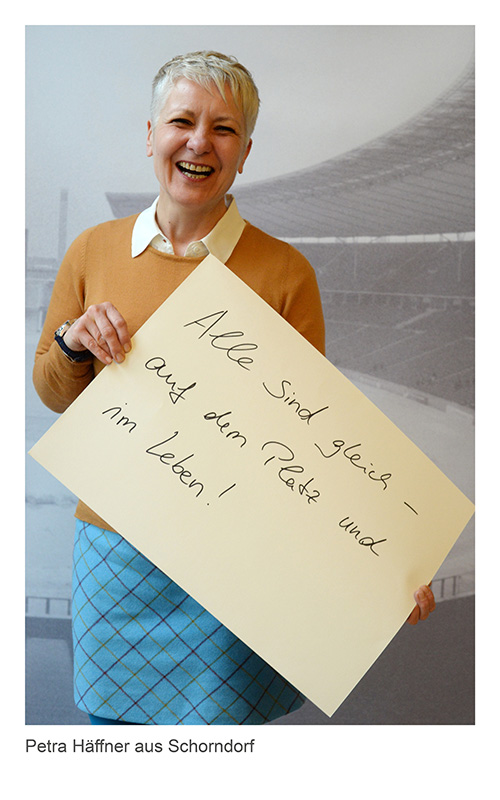 Alle sind gleich –
auf dem Platz und
im Leben!
Petra Häffner aus Schorndorf